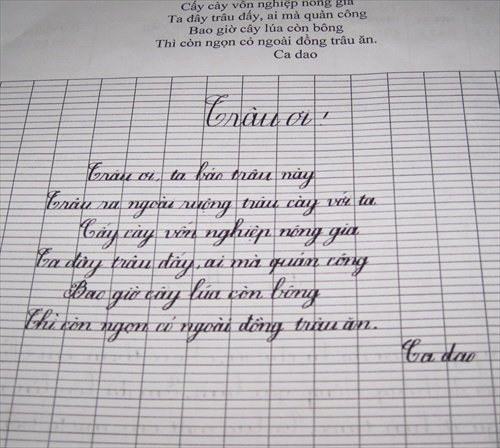 Cấy cày vốn nghiệp nông gia
Ta đây trâu đấy, ai mà quản công
Bao giờ cây lúa còn bông
Thì còn ngọn cỏ ngoài đồng trâu ăn.
Ca dao
Trâu ơi!
Trâu ơi, ta bảo trâu này
Trâu ra ngoài ruộng trâu cày với ta.
Cấy cày vốn nghiệp nông gia,
Ta đây trâu đấy, ai mà quản công
Bao giờ cây lúa còn bông
Thì còn ngọn cỏ ngoài đồng trâu ăn.
Ca dao